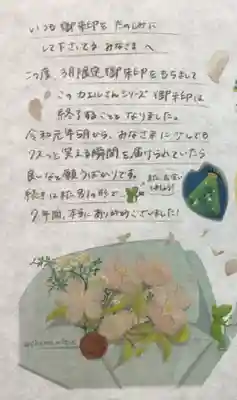 いつも御朱印をたのしみに
して下さってる みなさまへ
この度、3月限定御朱印をもちまして
このカエルさんシリーズ御朱印は
終了することとなりました。
令和元年5月から、みなさまに少しでも
クスっと笑える瞬間を届けられていたら
良いなと願うばかりです。
続きはまた別の形で
また、お会い
しましょう!
7年間、本当にありがとうございました!